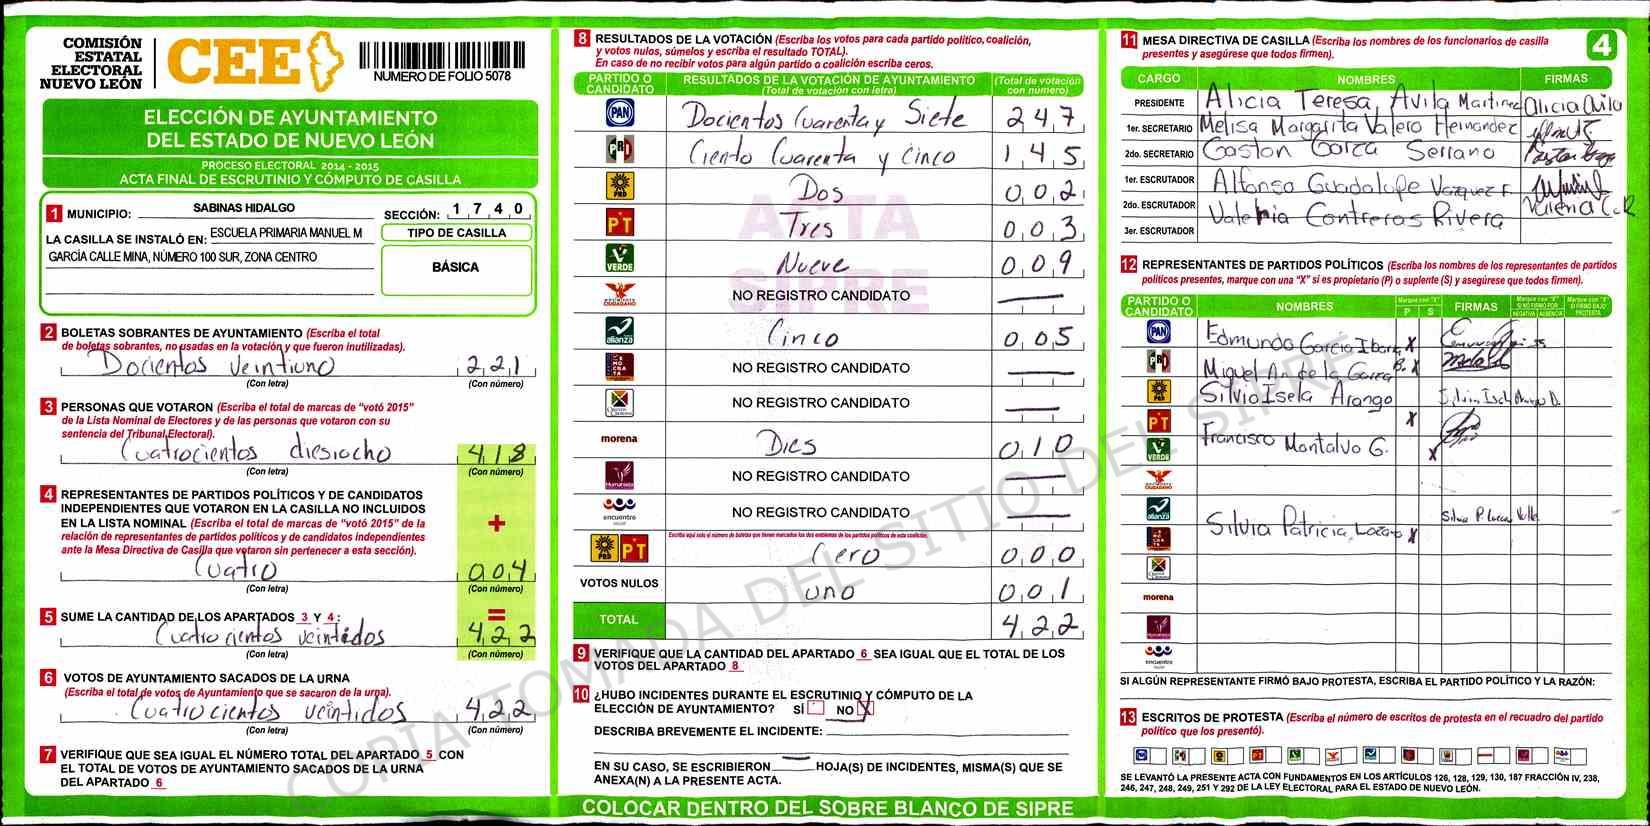 COMISIÓN
ESTATAL
ELECTORAL
NUEVO LEÓN
CEE
NUMERO DE FOLIO 5078
ELECCIÓN DE AYUNTAMIENTO
DEL ESTADO DE NUEVO LEÓN
PROCESO ELECTORAL 2014 - 2015
ACTA FINAL DE ESCRUTINIO Y CÓMPUTO DE CASILLA
1 MUNICIPIO: SABINAS HIDALGO SECCIÓN: 1 7 4 0
LA CASILLA SE INSTALÓ EN: ESCUELA PRIMARIA MANUEL M
GARCÍA CALLE MINA, NÚMERO 100 SUR, ZONA CENTRO
TIPO DE CASILLA
BÁSICA
2 BOLETAS SOBRANTES DE AYUNTAMIENTO (Escriba el total
de boletas sobrantes, no usadas en la votación y que fueron inutilizadas).
Docientos veintiuno 2 2 1
(Con letra) (Con número)
3 PERSONAS QUE VOTARON (Escriba el total de marcas de "votó 2015"
de la Lista Nominal de Electores y de las personas que votaron con su
sentencia del Tribunal Electoral).
Cuatrocientos diesiocho 4 1 8
(Con letra) (Con número)
4 REPRESENTANTES DE PARTIDOS POLÍTICOS Y DE CANDIDATOS
INDEPENDIENTES QUE VOTARON EN LA CASILLA NO INCLUIDOS
EN LA LISTA NOMINAL (Escriba el total de marcas de "votó 2015" de la
relación de representantes de partidos políticos y de candidatos independientes
ante la Mesa Directiva de Casilla que votaron sin pertenecer a esta sección).
+
Cuatro 0 0 4
(Con letra) (Con número)
=
5 SUME LA CANTIDAD DE LOS APARTADOS 3 Y 4:
Cuatrocientos veintidos 4 2 2
(Con letra) (Con número)
6 VOTOS DE AYUNTAMIENTO SACADOS DE LA URNA
(Escriba el total de votos de Ayuntamiento que se sacaron de la urna).
Cuatrocientos veintidos 4 2 2
(Con letra) (Con número)
7 VERIFIQUE QUE SEA IGUAL EL NÚMERO TOTAL DEL APARTADO 5 CON
EL TOTAL DE VOTOS DE AYUNTAMIENTO SACADOS DE LA URNA
DEL APARTADO 6
8 RESULTADOS DE LA VOTACIÓN (Escriba los votos para cada partido político, coalición,
y votos nulos, súmelos y escriba el resultado TOTAL).
En caso de no recibir votos para algún partido o coalición escriba ceros.
PARTIDO O CANDIDATO
RESULTADOS DE LA VOTACIÓN DE AYUNTAMIENTO
(Total de votación con letra)
(Total de votación con número)
PAN Docientos Cuarenta y Siete 2 4 7
PRI Ciento Cuarenta y cinco 1 4 5
PRD Dos 0 0 2
PT Tres 0 0 3
VERDE Nueve 0 0 9
CIUDADANO NO REGISTRO CANDIDATO
alianza Cinco 0 0 5
NO REGISTRO CANDIDATO
NO REGISTRO CANDIDATO
morena Dies 0 1 0
Humanista NO REGISTRO CANDIDATO
encuentro social NO REGISTRO CANDIDATO
Escriba aquí solo el número de boletas que tienen marcados los dos emblemas de los partidos políticos de esta coalición.
PRD PT Cero 0 0 0
VOTOS NULOS uno 0 0 1
TOTAL 4 2 2
ACTA
SIPRE
9 VERIFIQUE QUE LA CANTIDAD DEL APARTADO 6 SEA IGUAL QUE EL TOTAL DE LOS
VOTOS DEL APARTADO 8
10 ¿HUBO INCIDENTES DURANTE EL ESCRUTINIO Y CÓMPUTO DE LA
ELECCIÓN DE AYUNTAMIENTO? SÍ NO X
DESCRIBA BREVEMENTE EL INCIDENTE:
EN SU CASO, SE ESCRIBIERON HOJA(S) DE INCIDENTES, MISMA(S) QUE SE
ANEXA(N) A LA PRESENTE ACTA.
COLOCAR DENTRO DEL SOBRE BLANCO DE SIPRE
11 MESA DIRECTIVA DE CASILLA (Escriba los nombres de los funcionarios de casilla
presentes y asegúrese que todos firmen).
4
CARGO NOMBRES FIRMAS
PRESIDENTE Alicia Teresa Avila Martinez Alicia Avila
1er. SECRETARIO Melisa Margarita Valero Hernandez
2do. SECRETARIO Gaston Garza Serrano
1er. ESCRUTADOR Alfonso Guadalupe Vazquez F.
2do. ESCRUTADOR Valeria Contreras Rivera Valeria C. R
3er. ESCRUTADOR
12 REPRESENTANTES DE PARTIDOS POLÍTICOS (Escriba los nombres de los representantes de partidos
políticos presentes, marque con una "X" si es propietario (P) o suplente (S) y asegúrese que todos firmen).
PARTIDO O CANDIDATO NOMBRES Marque con "X" P S FIRMAS Marque con "X" SI NO FIRMÓ POR NEGATIVA AUSENCIA Marque con "X" SI FIRMÓ BAJO PROTESTA
PAN Edmundo Garcia Ibarra X
PRI Miguel An. de la Garza B. X
PRD Silvia Isela Arango
PT X
VERDE Francisco Montalvo G. X
CIUDADANO
alianza Silvia Patricia Lozano X
morena
Humanista
encuentro social
SI ALGÚN REPRESENTANTE FIRMÓ BAJO PROTESTA, ESCRIBA EL PARTIDO POLÍTICO Y LA RAZÓN:
13 ESCRITOS DE PROTESTA (Escriba el número de escritos de protesta en el recuadro del partido
político que los presentó).
SE LEVANTÓ LA PRESENTE ACTA CON FUNDAMENTOS EN LOS ARTÍCULOS 126, 128, 129, 130, 187 FRACCIÓN IV, 238,
246, 247, 248, 249, 251 Y 292 DE LA LEY ELECTORAL PARA EL ESTADO DE NUEVO LEÓN.
COPIA TOMADA DEL SITIO DEL SIPRE